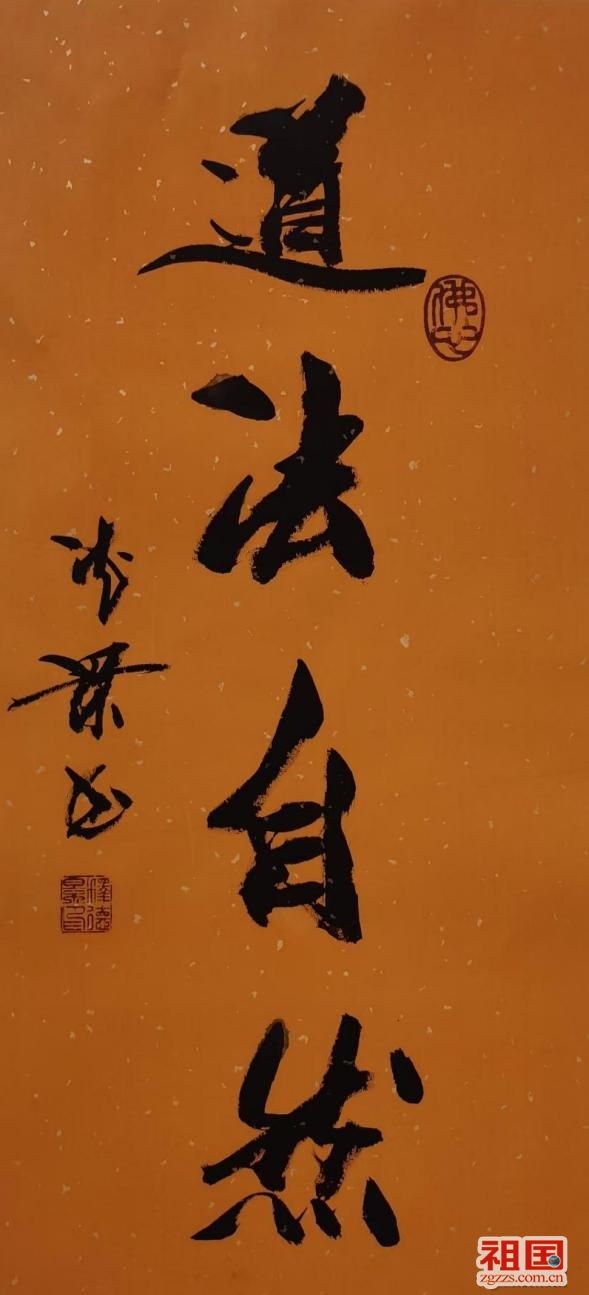 道法自然
佛心
祖国
zgzzs.com.cn